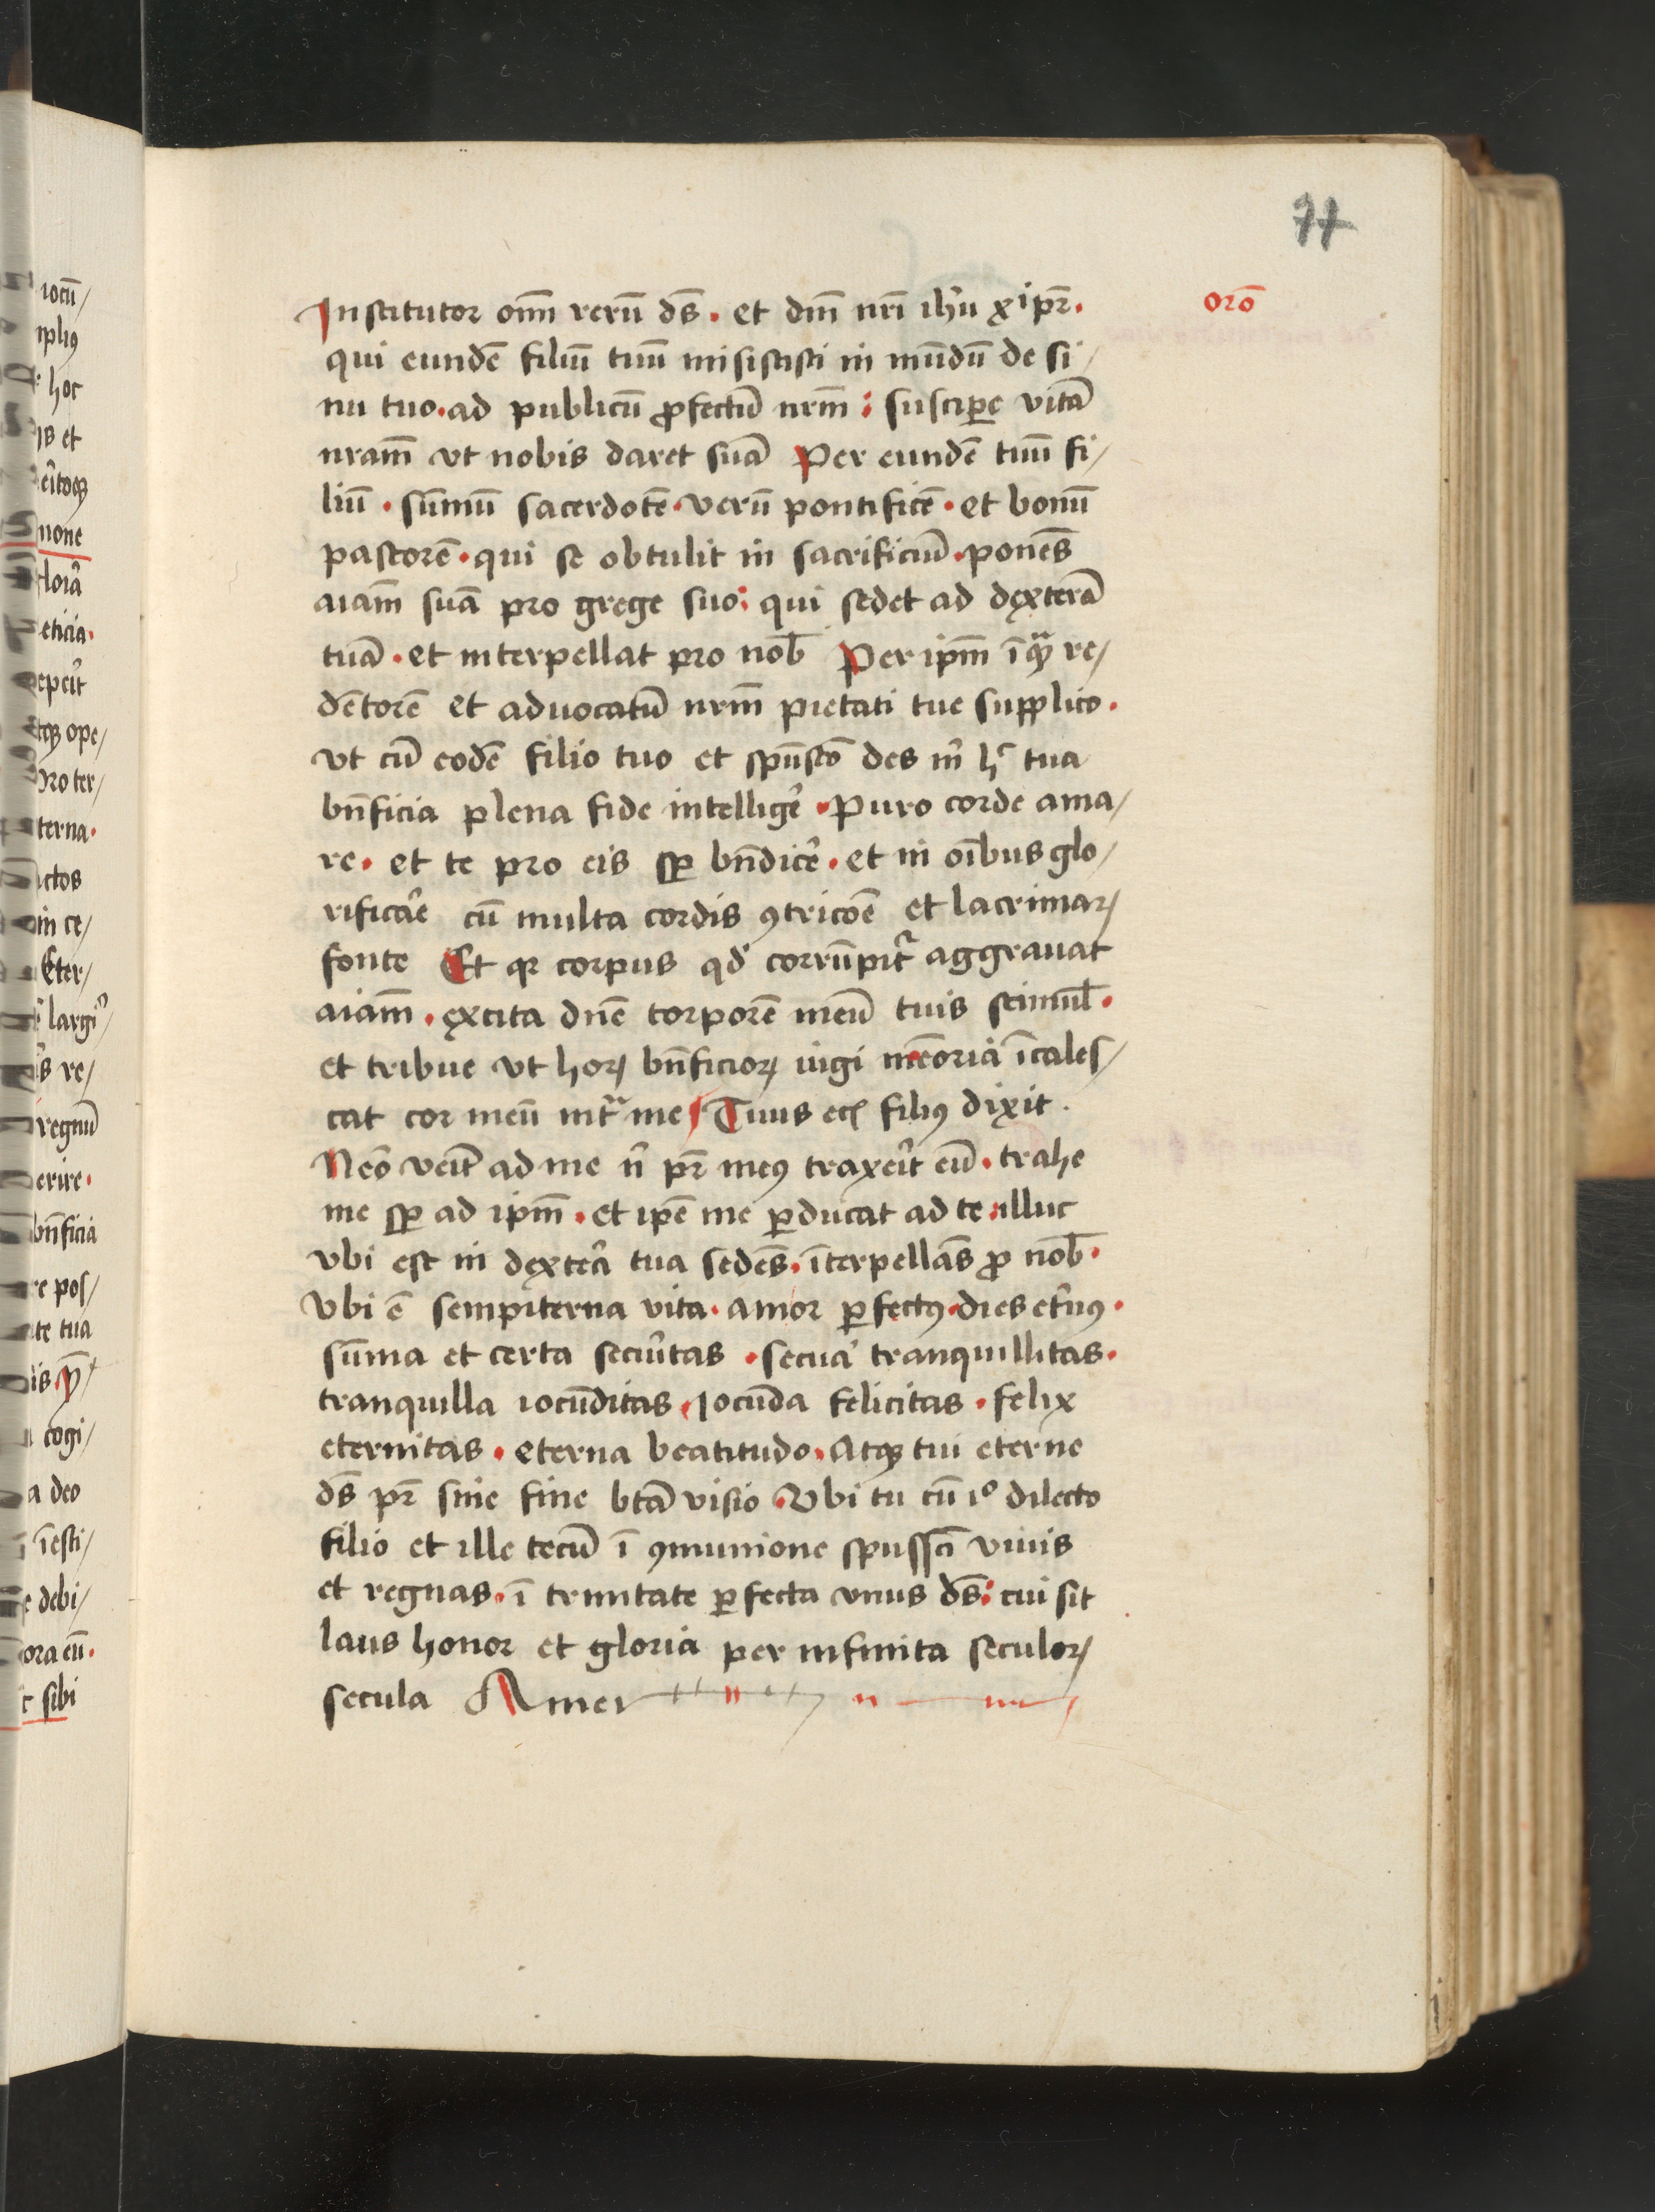 77
Institutor om̄ rerū ds̄ . et dn̄i nr̄i ih̄u xp̄i pr̄ .
orō
qui eundē filiū tuū misisti in mūdū de si/
nu tuo . ad publicū ꝓfectū nrm̄ : suscipe vitā
nram̄ vt nobis daret suā Per eundē tuū fi/
liū . sūmū sacerdotē . verū pontificē . et bonū
pastorē . qui se obtulit in sacrificiū . ponēs
aiam̄ suā pro grege suo : qui sedet ad dexterā
tuā . et interpellat pro nob̄ Per ipm̄ re/
dētorē et aduocatū nrm̄ pietati tue supplico .
vt cū eodē filio tuo et spūsctō des m̄ hͨ tua
bn̄ficia plena fide intelligē . Puro corde ama/
re . et te pro eis sꝑ bn̄dicē . et in oībus glo/
rificare cū multa cordis ꝯtricōe et lacrimaꝝ
fonte Et qꝛ corpus qđ corrūpit᷑ aggrauat
aiam̄ . excita dn̄e torporē meū tuis stimul̄ .
et tribue vt hoꝝ bn̄ficioꝝ iugi memoria īcales/
cat cor meū intͣ me Tuus eēī filiꝰ dixit .
Nēo veīt ad me n̄ pr̄ meꝰ traxeīt eū . trahe
me sꝑ ad ipm̄ . et ipē me ꝑducat ad te . illuc
vbi est in dextera tua sedēs . īterpellās ꝓ nob̄ .
Vbi ē sempiterna vita . amor ꝑfectꝰ . dies etn̄ꝰ .
sūma et certa secūitas . secura tranquillitas .
tranquilla iocūditas . Jocūda felicitas . felix
eternitas . eterna beatitudo . Atqꝫ tui eterne
ds̄ pr̄ sine fine btā visio . Vbi tu cū iᵒ dilecto
filio et ille tecū ī ꝯmunione spussctī viuis
et regnas . ī trinitate ꝑfecta vnus ds̄ : cui sit
laus honor et gloria per infinita seculoꝝ
secula Amen